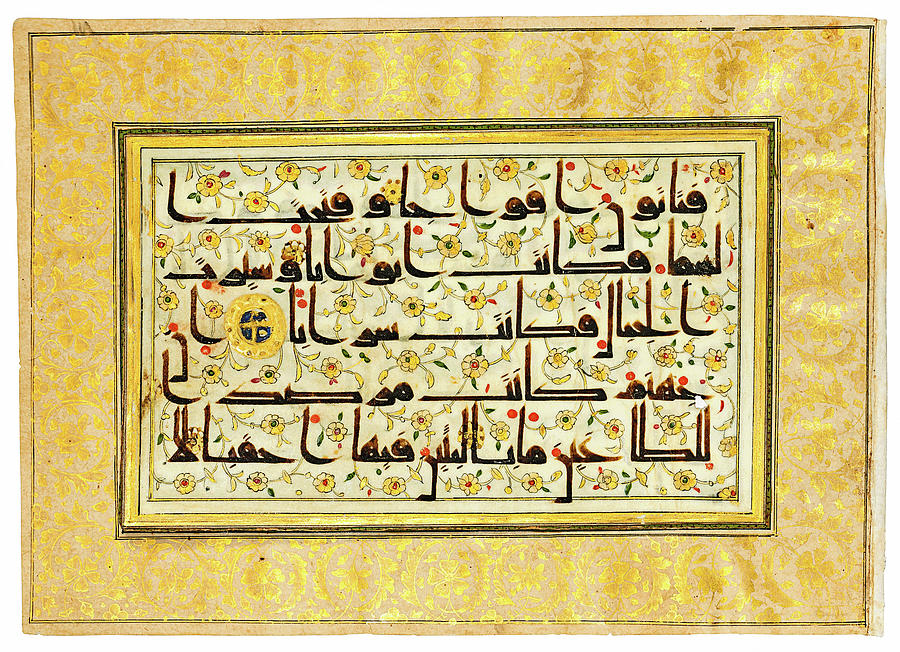 فتاتون افواجا وفتحت ا
لسما فكانت ابوبا وسيرت
الجبال فكانت سرابا ان
جهنم كانت مرصدا
للطاغين مابا لبثين فيها احقابا لا